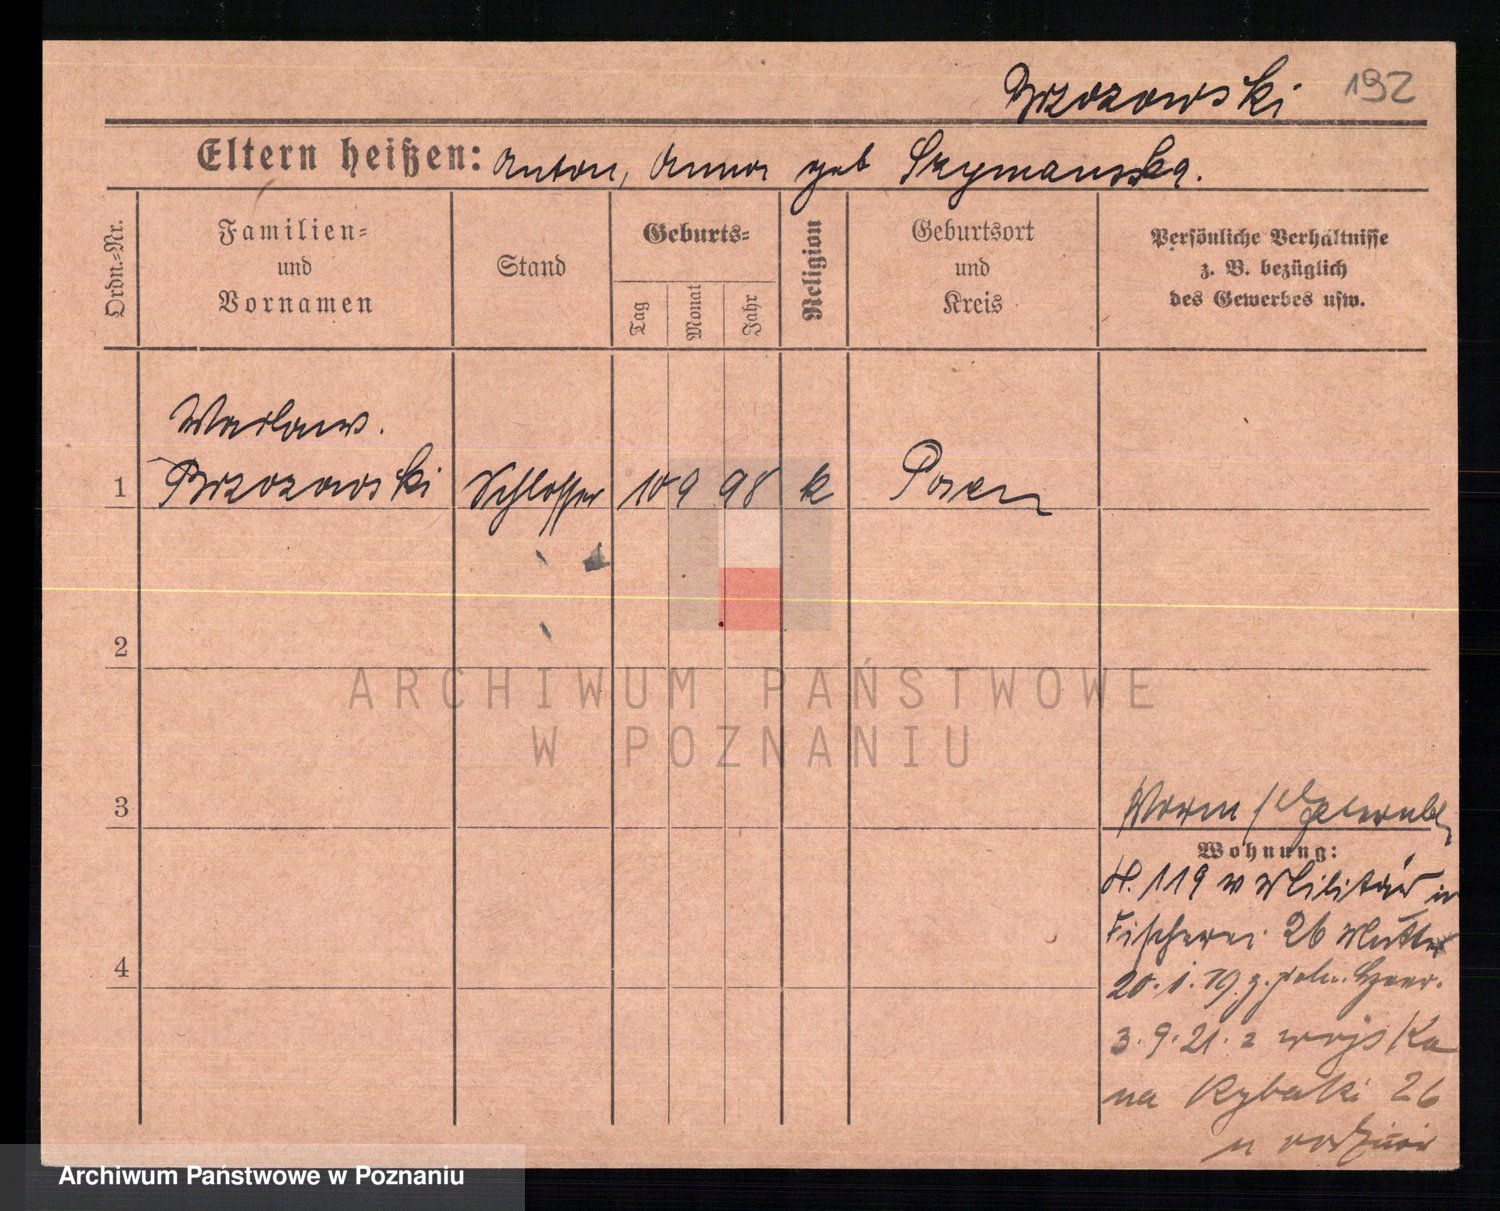 Brzozowski 192
Eltern heißen: Anton, Anna geb Szymanska.
Ordn.-Nr.
Familien-
und
Vornamen
Stand
Geburts-
Tag
Monat
Jahr
Religion
Geburtsort
und
Kreis
Persönliche Verhältnisse
z. B. bezüglich
des Gewerbes usw.
Waclaw.
1 Brzozowski Schlosser 10 9 98 k Posen
2
ARCHIWUM PAŃSTWOWE
W POZNANIU
3
Wohnung:
119 v Militär in
Fischerei 26 Mutter
4
20.1.19. z. poln. Heer.
3.9.21. z wojska
na Rybaki 26
Archiwum Państwowe w Poznaniu